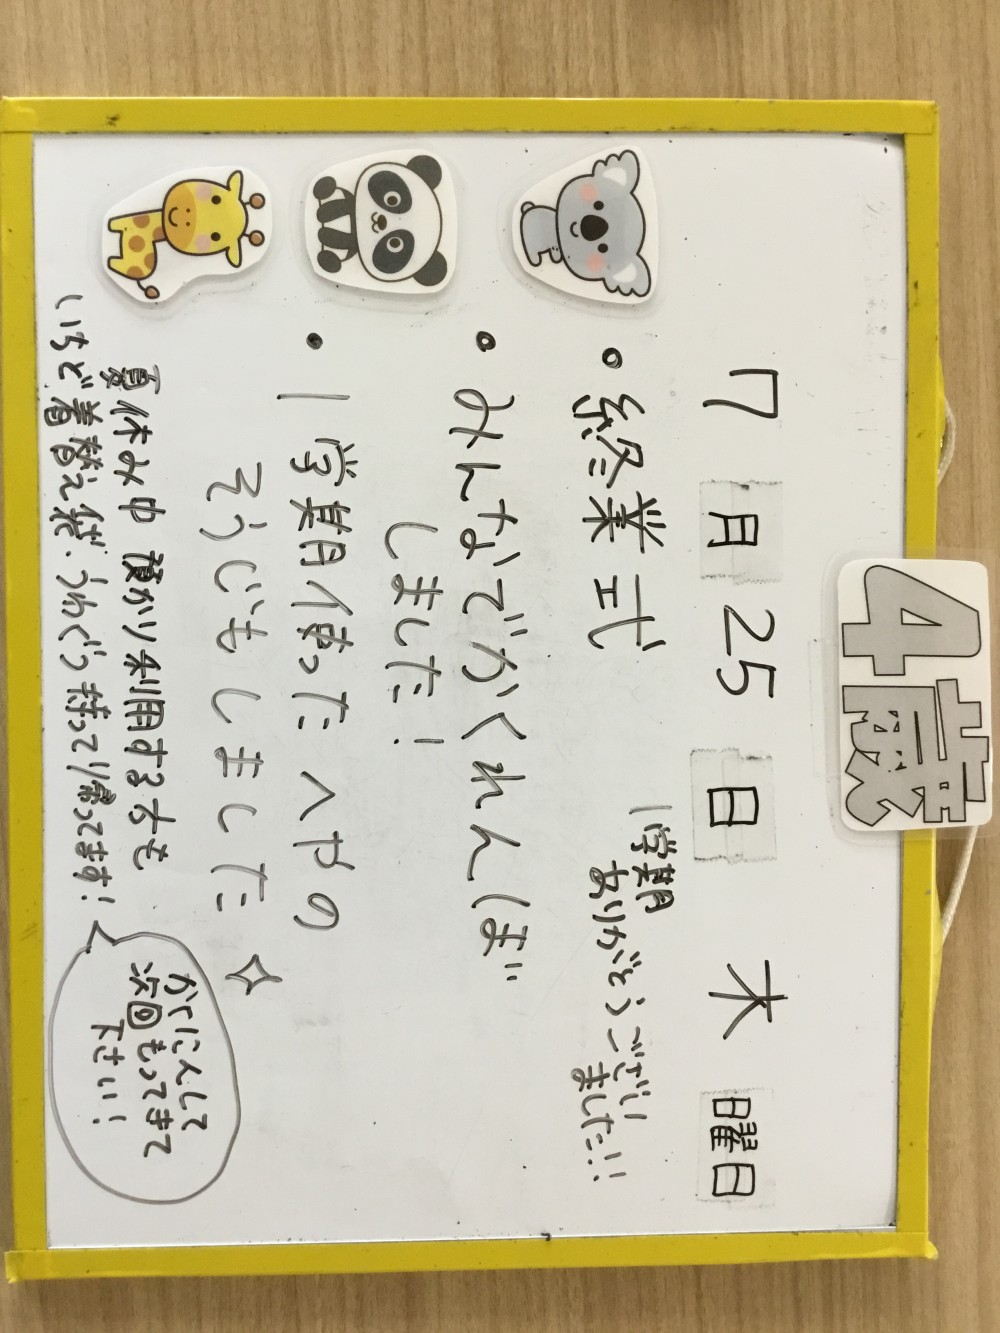 4歳
7月25日 木曜日
• 終業式
1学期
ありがとうござい
ました!!
• みんなでかくれんぼ
しました!
• 1学期使ったへやの
そうじもしました
夏休み中 預かり利用する方も
いちど着替え袋・うわぐつ持って帰ってます!
かくにんして
次回もってきて
下さい!